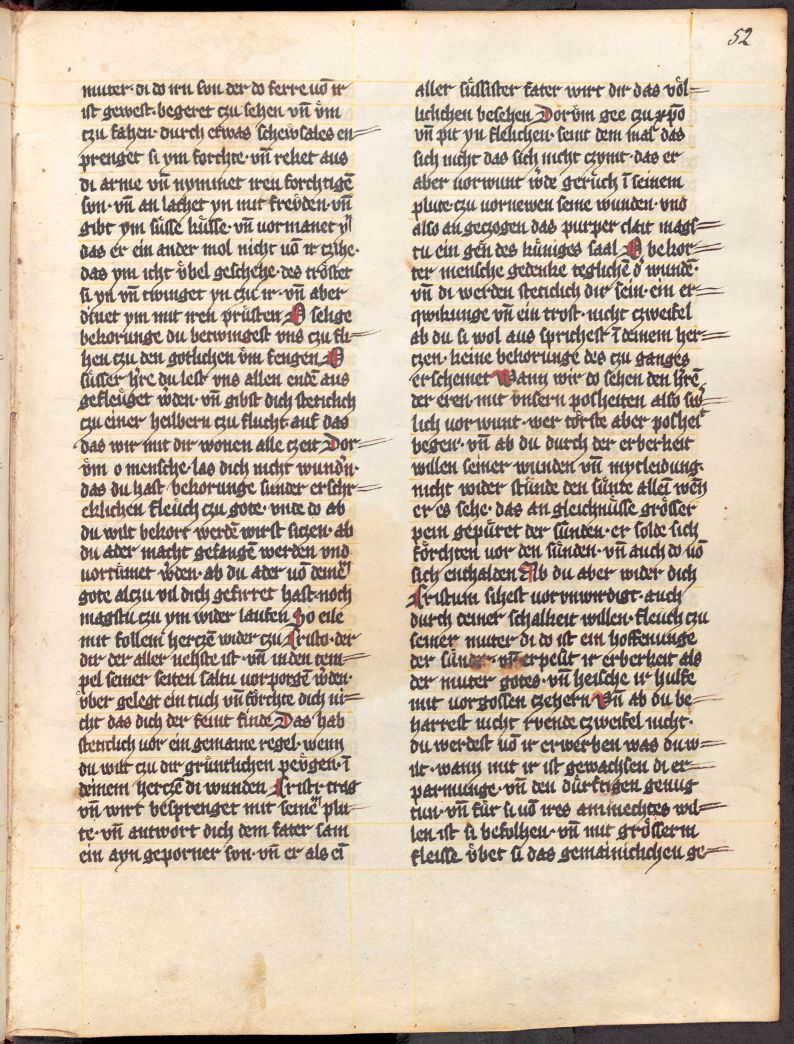 52
muter · di do irn son der do ferre vō ir
ist gewest · begeret czu sehen vn̄ v̊m
czu fahen · durch etwas schewsales en=
prenget si ym forchte · vn̄ reket aus
di arme vn̄ nymmet iren forchtigē
son · vn̄ an lachet yn mit frevden · vn̄
gibt ym süsse küsse · vn̄ vormanet yn
das er ein ander mol nicht vō ir czihe ·
das ym icht v̊bel geschehe · des tröstet
si yn vn̄ twinget yn czu ir · vn̄ aber
dinet ym mit iren prüsten O selige
bekorunge du betwingest vns czu fli=
hen czu den gotlichen v̊m fengen O
süsser h're du lest vns allen endē aus
gefleuget w'den · vn̄ gibst dich steticlich
czu einer heilbern czu flucht · auf das
das wir mit dir wonen alle czeit Dor=
v̊m o mensche · las dich nicht wund'n ·
das du hast bekorunge sunder erschr=
eklichen fleuch czu gote · vnde do ab
du wilt bekort werdē wirst siczen · ab
du ader macht gefangē werden vnd
vortümet w'den · ab du ader vō deinē
gote alczu vil dich gefirret hast · noch
magstu czu ym wider laufen So eile
mit follem herczē wider czu Cristo · der
dir der aller nehste ist · vn̄ in den tem=
pel seiner seiten saltu vorporgē w'den ·
v̊ber gelegt ein tuch vn̄ förchte dich ni=
cht das dich der feint finde Das hab
steticlich vor ein gemaine regel · wenn
du wilt czu dir grüntlichen pevgen · ī
deinem herczē di wunden Cristi · trag
vn̄ wirt besprenget mit seinē plu=
te · vn̄ antwort dich dem fater sam
ein ayn geporner son · vn̄ er als eī
aller süssister fater wirt dir das völ=
lichchen besehen Dorv̊m gee czu xp̄o
vn̄ pit yn flelichen · seint dem mal das
sich nicht das sich nicht czymt · das er
aber vorwunt w'de geruch ī seinem
plute · czu vornewen seine wunden · vnd
also an geczogen das purper clait mags=
tu ein gen des küniges saal O bekor=
ter mensche gedenke teglichē d' wundē ·
vn̄ di werden steticlich dir sein · ein er=
qwikunge vn̄ ein trost · nicht czweifel
ab du si wol aus sprichest ī deinem her=
czen · keine bekorunge des czu ganges
erscheinet Wann wir do sehen den h'rē
der eren · mit vnsern posheiten also
lich vorwunt · wer törste aber posheit
begen · vn̄ ab du durch der erberkeit
willen seiner wunden vn̄ mytleidung ·
nicht wider stünde den sünde allein wen
er es sehe · das an gleichnüsse grösser
pein gepüret der sunden · er solde sich
förchten vor den sünden · vn̄ auch do vō
sich enthalden Ab du aber wider dich
Cristum sihest vorvnwirdigt · auch
durch deiner schalkeit willen · fleuch czu
seiner muter · di do ist ein hoffenunge
der sünder · vn̄ erpeut ir erberkeit als
der muter gotes · vn̄ heische ir hulfe
mit vorgossen czehern Vn̄ ab du be=
harrest nicht rvende czweifel nicht ·
du werdest vō ir erwerben was du w=
ilt · wann mit ir ist gewachsen di er=
parmunge · vn̄ den dürftigen genug
tun · vn̄ für si vō ires ammechtes wil=
len ist si befolhen · vn̄ mit grösserm
fleisse v̊bet si das gemainiclichen ge=